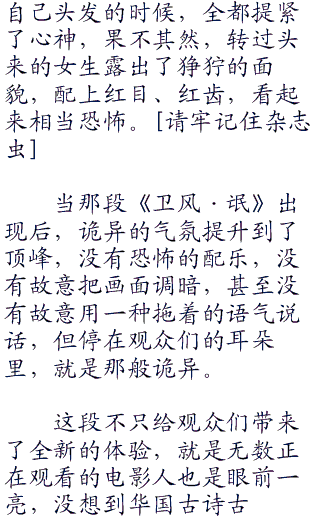 自己头发的时候，全都提紧
了心神，果不其然，转过头
来的女生露出了狰狞的面
貌，配上红目、红齿，看起
来相当恐怖。[请牢记住杂志
虫]
当那段《卫风·氓》出
现后，诡异的气氛提升到了
顶峰，没有恐怖的配乐，没
有故意把画面调暗，甚至没
有故意用一种拖着的语气说
话，但停在观众们的耳朵
里，就是那般诡异。
这段不只给观众们带来
了全新的体验，就是无数正
在观看的电影人也是眼前一
亮，没想到华国古诗古